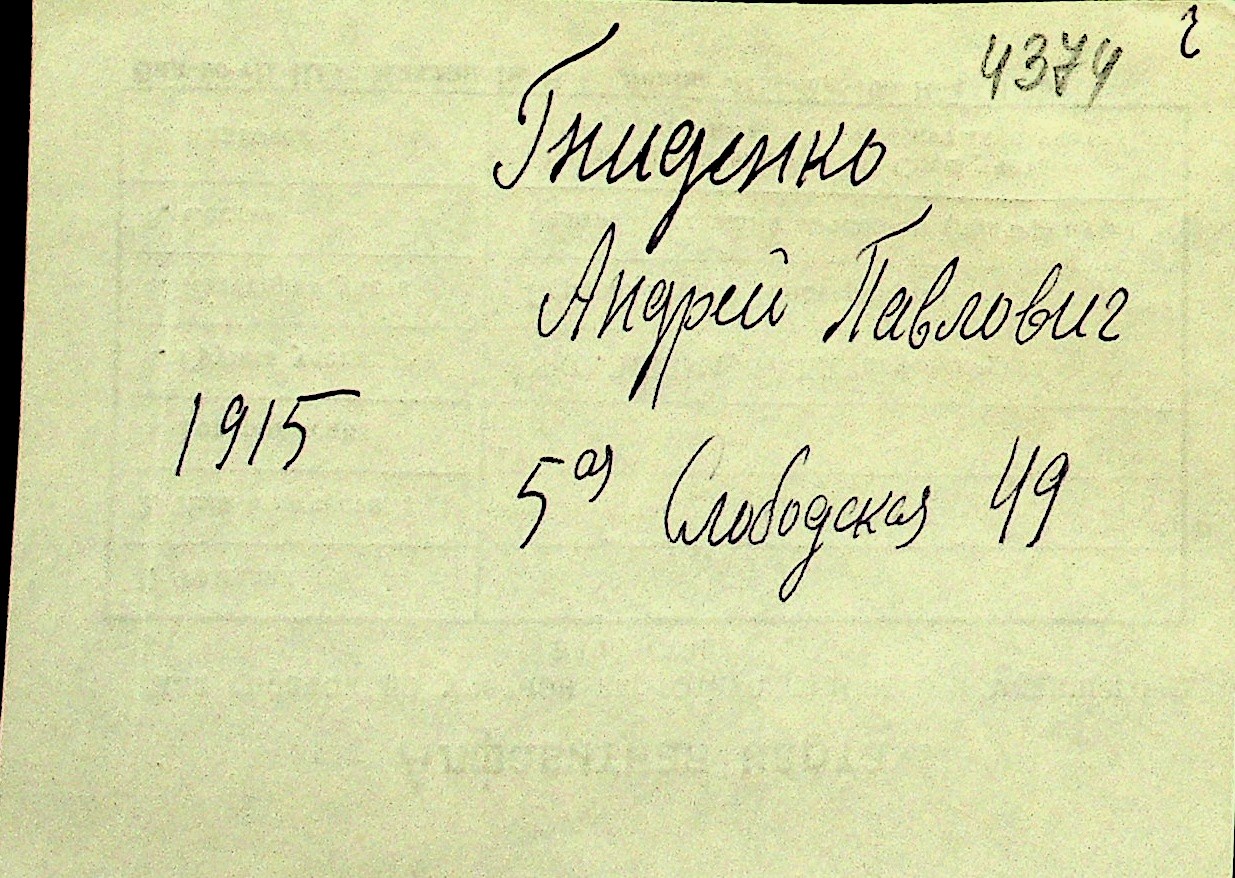 4374 г
Гниденко
Андрей Павлович
1915
5ая Слободская 49